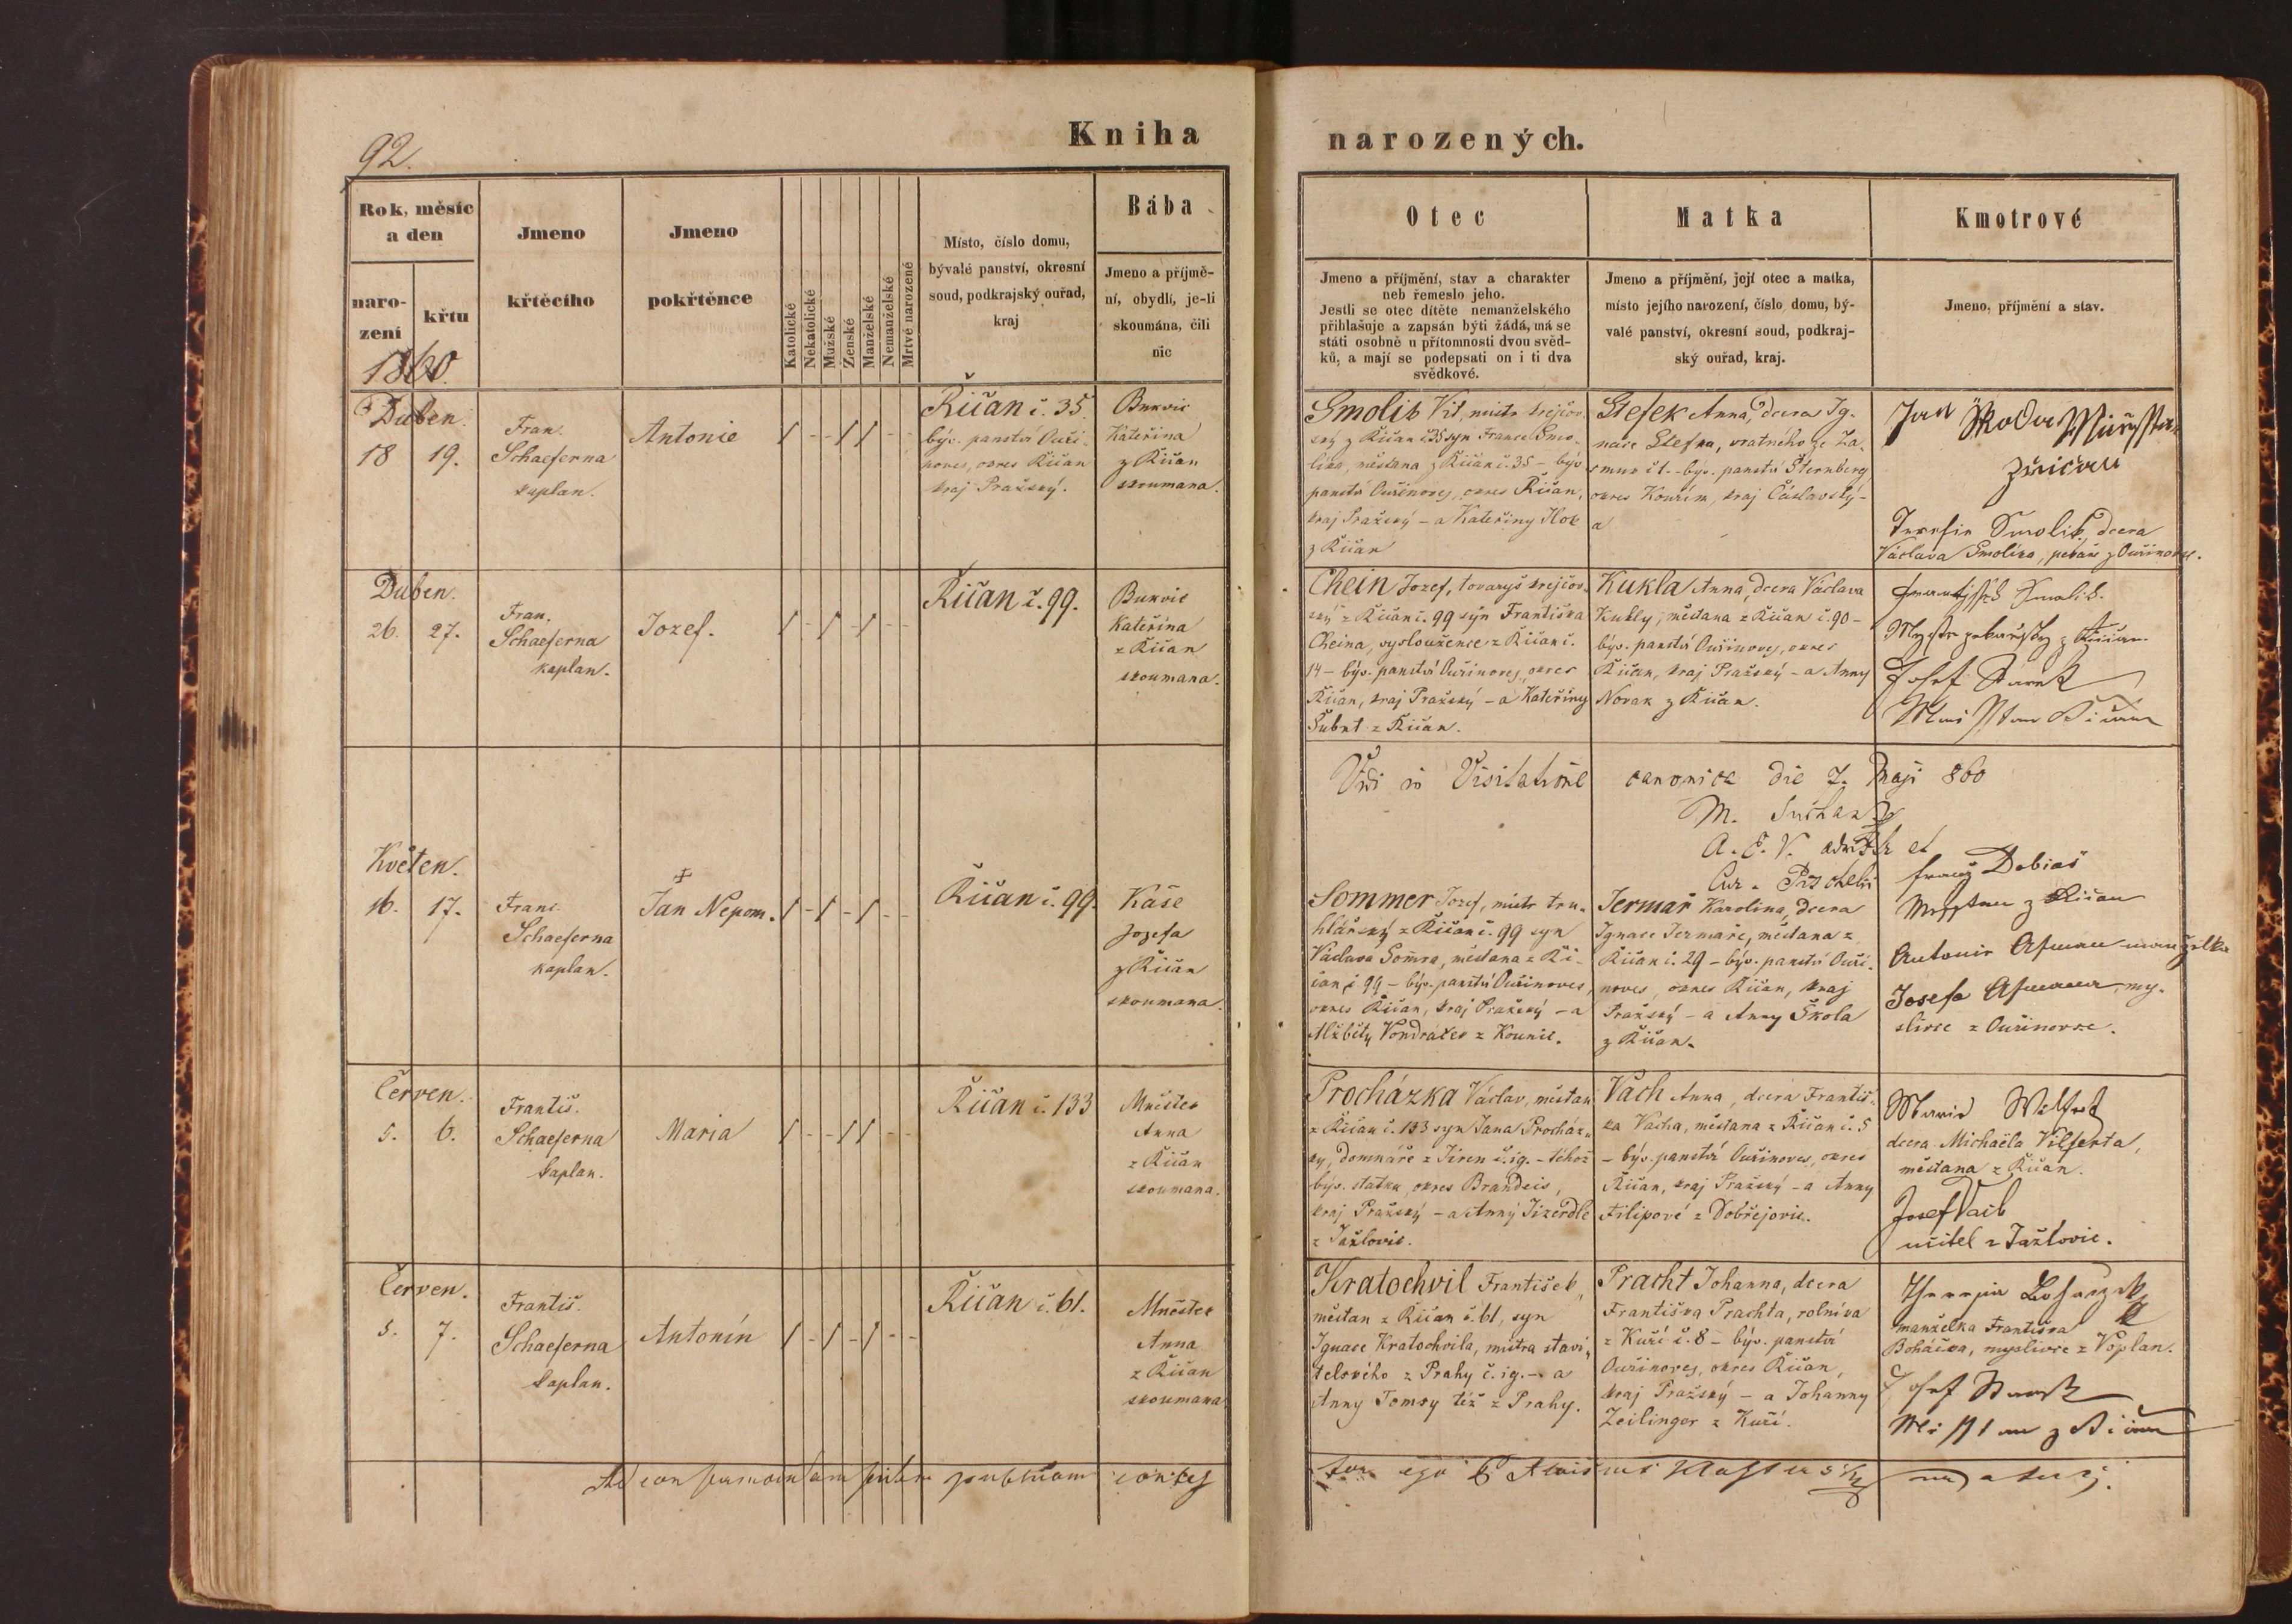 92.
Kniha
narozených.
Rok, měsíc
a den
naro-
zení
křtu
1860.
Jmeno
křtěcího
Jmeno
pokřtěnce
Katolické
Nekatolické
Mužské
Ženské
Manželské
Nemanželské
Mrtvé narozené
Místo, číslo domu,
bývalé panství, okresní
soud, podkrajský ouřad,
kraj
Bába
Jmeno a příjmě-
ní, obydlí, je-li
skoumána, čili
nic
Otec
Jmeno a příjmění, stav a charakter
neb řemeslo jeho.
Jestli se otec dítěte nemanželského
přihlašuje a zapsán býti žádá, má se
státi osobně u přítomnosti dvou svěd-
ků, a mají se podepsati on i ti dva
svědkové.
Matka
Jmeno a příjmění, její otec a matka,
místo jejího narození, číslo domu, bý-
valé panství, okresní soud, podkraj-
ský ouřad, kraj.
Kmotrové
Jmeno, příjmění a stav.
Duben.
18 19.
Fran.
Schaeferna
kaplan.
Antonie
1 - - 1 1 - -
Řičan č. 35.
býv. panství Ouři-
noves, okres Řičan
kraj Pražský.
Bukvic
Kateřina
z Řičan
skoumana.
Smolik Vít, mistr krejčov-
ský z Řičan č 35 syn France Smo-
lika, měšťana z Řičan č. 35 - býv.
panství Ouřinoves, okres Řičan,
kraj Pražský - a Kateřiny Hok
z Řičan
Stefek Anna, dcera Ig-
nace Stefka, vratného ze Žá-
smuk č 1. - býv. panství Šternberg
okres Kouřim, kraj Čáslavský -
a
Jan Škoda
Smolik, dcera
Václava Smolika, pekaře z Ouřinovse.
Duben.
26. 27.
Fran.
Schaeferna
kaplan.
Jozef.
1 - 1 - 1 - -
Řičan č. 99.
Bukvic
Kateřina
z Řičan
skoumana.
Chein Jozef, tovaryš krejčov-
ský z Řičan č. 99 syn Františka
Cheina, vysloužence z Řičan č.
14 - býv. panství Ouřinoves, okres
Řičan, kraj Pražský - a Kateřiny
Šubrt z Řičan.
Kukla Anna, dcera Václava
Kukly, měšťana z Řičan č. 90 -
býv. panství Ouřinoves, okres
Řičan, kraj Pražský - a Anny
Novak z Řičan.
Smolik.
z Řičan
Josef
Vidi in Visitatione canonica die 7. Maji 860
M.
A. E. V. et
Květen.
16. 17.
Franc.
Schaeferna
kaplan.
Jan Nepom.
1 - 1 - 1 - -
Řičan č. 99.
Kaše
Jozefa
z Řičan
skoumana.
Sommer Jozef, mistr tru-
hlářský z Řičan č. 99 syn
Václava Somra, měšťana z Ři-
čan č 99 - býv. panství Ouřinoves,
okres Řičan, kraj Pražský - a
Alžběty Vondraček z Kounic.
Jermař Karolina, dcera
Ignace Jermaře, měšťana z
Řičan č. 29 - býv. panství Ouři-
noves, okres Řičan, kraj
Pražský - a Anny Škola
z Řičan.
Franz Dobiaš
z Řičan
Josefa my-
slivce z Ouřinovse.
Červen.
5. 6.
Františ.
Schaeferna
kaplan.
Maria
1 - - 1 1 - -
Řičan č. 133
Mnéstek
Anna
z Řičan
skoumana.
Procházka Václav, měšťan
z Řičan č. 133 syn Jana Procház-
ky, domkáře z Jiren č. ig. - téhož
býv. statku, okres Brandeis,
kraj Pražský - a Anny Jizerdle
z Jažlovic.
Vach Anna, dcera Františ-
ka Vacha, měšťana z Řičan č. 5
- býv. panství Ouřinoves, okres
Řičan, kraj Pražský - a Anny
Filipové z Dobřejovic.
Marie
dcera Michaëla Vilferta,
měšťana z Řičan.
Josef
učitel z Jažlovic.
Červen.
5. 7.
Františ.
Schaeferna
kaplan.
Antonín
1 - 1 - 1 - -
Řičan č. 61.
Mnéstek
Anna
z Řičan
skoumana
Kratochvil František,
měšťan z Řičan č. 61, syn
Ignace Kratochvila, mistra stavi-
telského z Prahy č. ig. - a
Anny Tomsy též z Prahy.
Pracht Johanna, dcera
Františka Prachta, rolníka
z Kuří č. 8 - býv. panství
Ouřinoves, okres Řičan,
kraj Pražský - a Johanny
Zeilinger z Kuří.
manželka Františka
Boháčka, myslivce z Voplan.
Josef
z Řičan